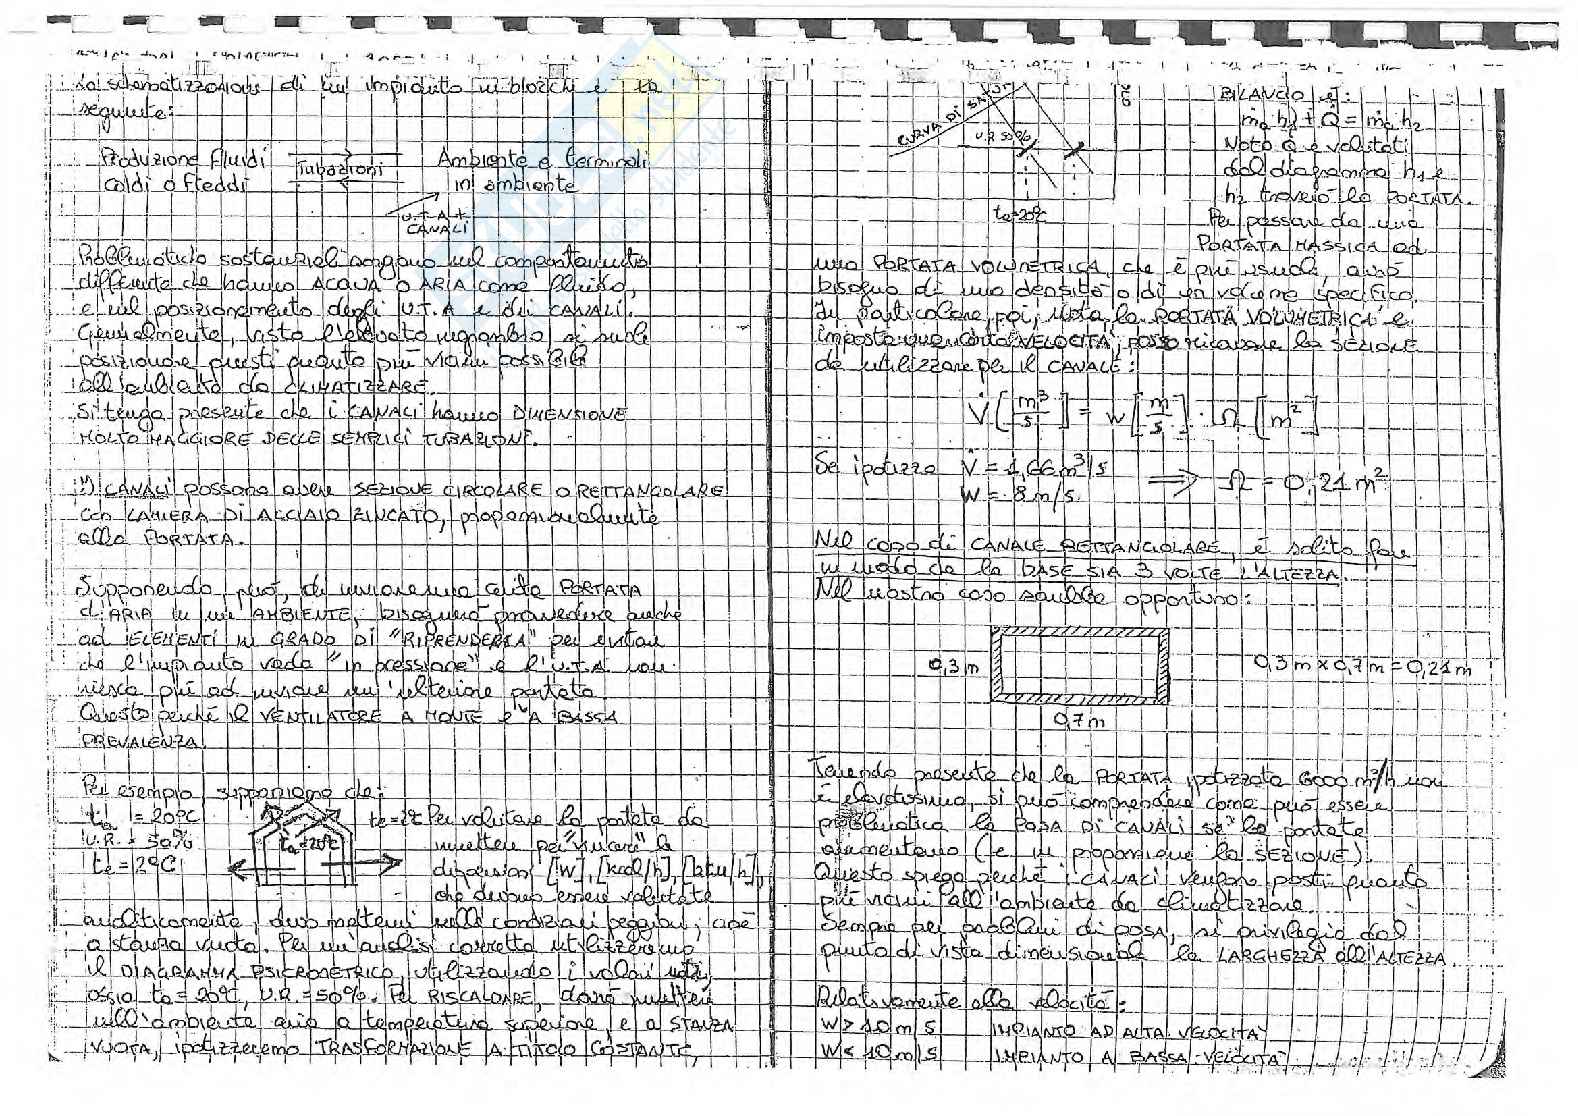 La schematizzazione di un impianto in blocchi è la
seguente:
Produzione Fluidi
caldi o freddi
Tubazioni
Ambiente e terminali
in ambiente
U.T.A +
CANALI
Problematiche sostanziali sorgono nel comportamento
differente che hanno ACQUA O ARIA come fluido,
e nel posizionamento degli U.T.A e dei CANALI.
Generalmente, visto l'elevato ingombro si suole
posizionare questi quanto più vicini possibile
all'ambiente da CLIMATIZZARE.
Si tenga presente che i CANALI hanno DIMENSIONE
MOLTO MAGGIORE DELLE SEMPLICI TUBAZIONI.
I CANALI possono avere SEZIONE CIRCOLARE O RETTANGOLARE
con LAMIERA DI ACCIAIO ZINCATO, proporzionalmente
alla PORTATA.
Supponendo, però, di inviare una certa PORTATA
d'ARIA in un AMBIENTE, bisognerà provvedere anche
ad ELEMENTI in GRADO DI "RIPRENDERLA" per evitare
che l'impianto vada "in pressione" e l'U.T.A non
riesca più ad inviare un'ulteriore portata.
Questo perché il VENTILATORE A MONTE È A BASSA
PREVALENZA.
Per esempio, supponiamo che:
ta = 20°C
U.R. = 50%
te = 2°C
ta=20°C
te=2°C
Per valutare la portata da
immettere per "vincere" le
dispersioni [W], [kcal/h], [btu/h],
che devono essere valutate
analiticamente, devo mettermi nelle condizioni peggiori, cioè
a stanza vuota. Per un'analisi corretta utilizzeremo
il DIAGRAMMA PSICROMETRICO, utilizzando i valori noti,
ossia ta=20°C, U.R.=50%. Per RISCALDARE, dovrò immettere
nell'ambiente aria a temperatura superiore, e a STANZA
VUOTA, ipotizzeremo TRASFORMAZIONE A TITOLO COSTANTE,
CURVA DI SAT
U.R 50%
ta=20°C
BILANCIO è:
ṁa h1 + Q̇ = ṁa h2
Noto Q̇ e valutati
dal diagramma h1 e
h2 troverò la PORTATA.
Per passare da una
PORTATA MASSICA ad
una PORTATA VOLUMETRICA, che è più usuale, avrò
bisogno di una densità o di un volume specifico.
In particolare, poi, nota la PORTATA VOLUMETRICA e
imposta una certa VELOCITÀ, posso ricavare la SEZIONE
da utilizzare per il CANALE:
V̇ [m³/s] = w [m/s] · Ω [m²]
Se ipotizzo V̇ = 1,66 m³/s
W = 8 m/s
⟹ Ω = 0,21 m²
Nel caso di CANALE RETTANGOLARE, è solito fare
in modo che la BASE SIA 3 VOLTE L'ALTEZZA.
Nel nostro caso sarebbe opportuno:
0,3 m
0,7 m
0,3 m x 0,7 m = 0,21 m
Tenendo presente che la PORTATA ipotizzata 6000 m³/h non
è elevatissima, si può comprendere come può essere
problematica la POSA DI CANALI se le portate
aumentano (e in proporzione la SEZIONE).
Questo spiega perché i CANALI vengono posti quanto
più vicini all'ambiente da climatizzare.
Sempre per problemi di posa, si privilegia dal
punto di vista dimensionale la LARGHEZZA all'ALTEZZA.
Relativamente alla velocità:
W > 10 m/s IMPIANTO AD ALTA VELOCITA'
W < 10 m/s IMPIANTO A BASSA VELOCITA'